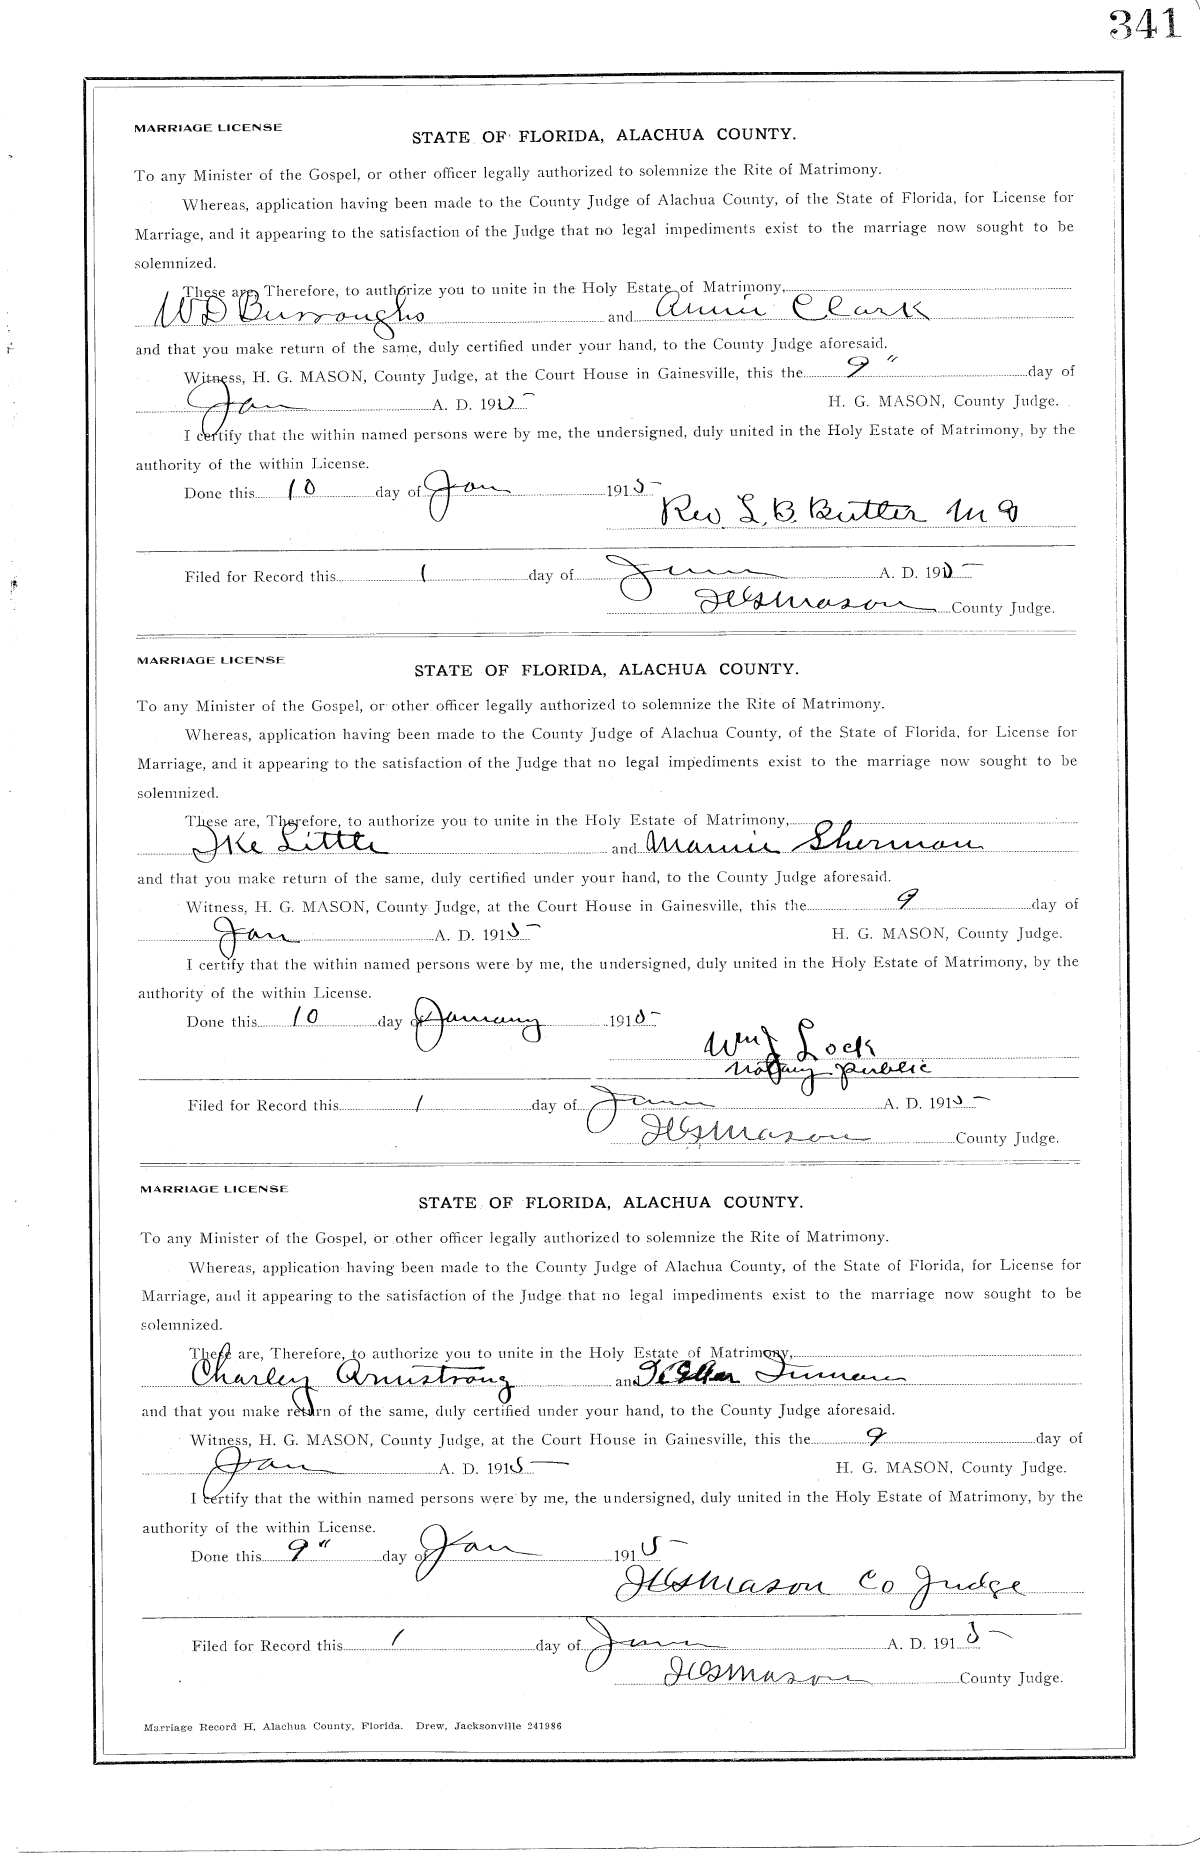 341
MARRIAGE LICENSE
STATE OF FLORIDA, ALACHUA COUNTY.
To any Minister of the Gospel, or other officer legally authorized to solemnize the Rite of Matrimony.
Whereas, application having been made to the County Judge of Alachua County, of the State of Florida, for License for
Marriage, and it appearing to the satisfaction of the Judge that no legal impediments exist to the marriage now sought to be
solemnized.
These are, Therefore, to authorize you to unite in the Holy Estate of Matrimony,
W D Burroughs and Annie Clark
and that you make return of the same, duly certified under your hand, to the County Judge aforesaid.
Witness, H. G. MASON, County Judge, at the Court House in Gainesville, this the 9" day of
Jan A. D. 1915 H. G. MASON, County Judge.
I certify that the within named persons were by me, the undersigned, duly united in the Holy Estate of Matrimony, by the
authority of the within License.
Done this 10 day of Jan 1915
Rev. L. B. Butler M G
Filed for Record this 1 day of June A. D. 1915
H G Mason County Judge.
MARRIAGE LICENSE
STATE OF FLORIDA, ALACHUA COUNTY.
To any Minister of the Gospel, or other officer legally authorized to solemnize the Rite of Matrimony.
Whereas, application having been made to the County Judge of Alachua County, of the State of Florida, for License for
Marriage, and it appearing to the satisfaction of the Judge that no legal impediments exist to the marriage now sought to be
solemnized.
These are, Therefore, to authorize you to unite in the Holy Estate of Matrimony,
Ike Little and Mamie Sherman
and that you make return of the same, duly certified under your hand, to the County Judge aforesaid.
Witness, H. G. MASON, County Judge, at the Court House in Gainesville, this the 9 day of
Jan A. D. 1915 H. G. MASON, County Judge.
I certify that the within named persons were by me, the undersigned, duly united in the Holy Estate of Matrimony, by the
authority of the within License.
Done this 10 day of January 1915
Wm J Lock
Notary public
Filed for Record this 1 day of June A. D. 1915
H G Mason County Judge.
MARRIAGE LICENSE
STATE OF FLORIDA, ALACHUA COUNTY.
To any Minister of the Gospel, or other officer legally authorized to solemnize the Rite of Matrimony.
Whereas, application having been made to the County Judge of Alachua County, of the State of Florida, for License for
Marriage, and it appearing to the satisfaction of the Judge that no legal impediments exist to the marriage now sought to be
solemnized.
These are, Therefore, to authorize you to unite in the Holy Estate of Matrimony,
Charley Armstrong and
and that you make return of the same, duly certified under your hand, to the County Judge aforesaid.
Witness, H. G. MASON, County Judge, at the Court House in Gainesville, this the 9 day of
Jan A. D. 1915 H. G. MASON, County Judge.
I certify that the within named persons were by me, the undersigned, duly united in the Holy Estate of Matrimony, by the
authority of the within License.
Done this 9" day of Jan 1915
H G Mason Co Judge
Filed for Record this 1 day of June A. D. 1915
H G Mason County Judge.
Marriage Record H, Alachua County, Florida. Drew, Jacksonville 241986